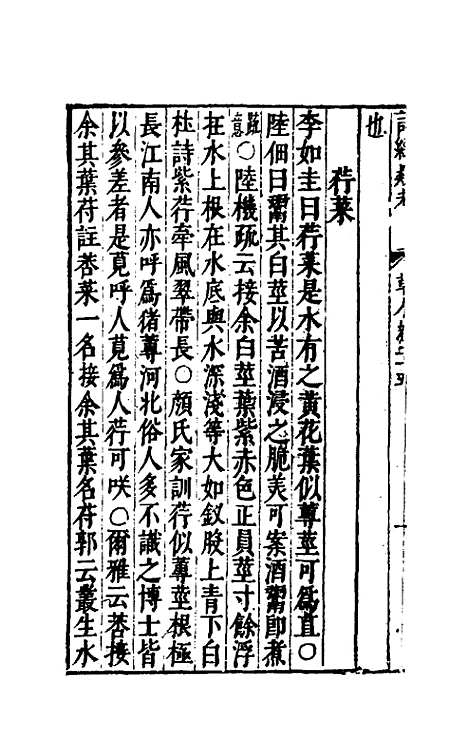 也
荇菜
李如圭曰荇菜是水有之黃花葉似蓴莖可爲直○
陸佃曰鬻其白莖以苦酒浸之脆美可案酒鬻即煮
䟽意○陸機疏云接余白莖葉紫赤色正員莖寸餘浮
在水上根在水底與水深淺等大如釵股上青下白
杜詩紫荇牽風翠帶長○顏氏家訓荇似蓴莖根極
長江南人亦呼爲偖蓴河北俗人多不識之博士皆
以參差者是莧呼人莧爲人荇可咲○爾雅云莕接
余其葉苻註莕菜一名接余其葉名苻郭云叢生水